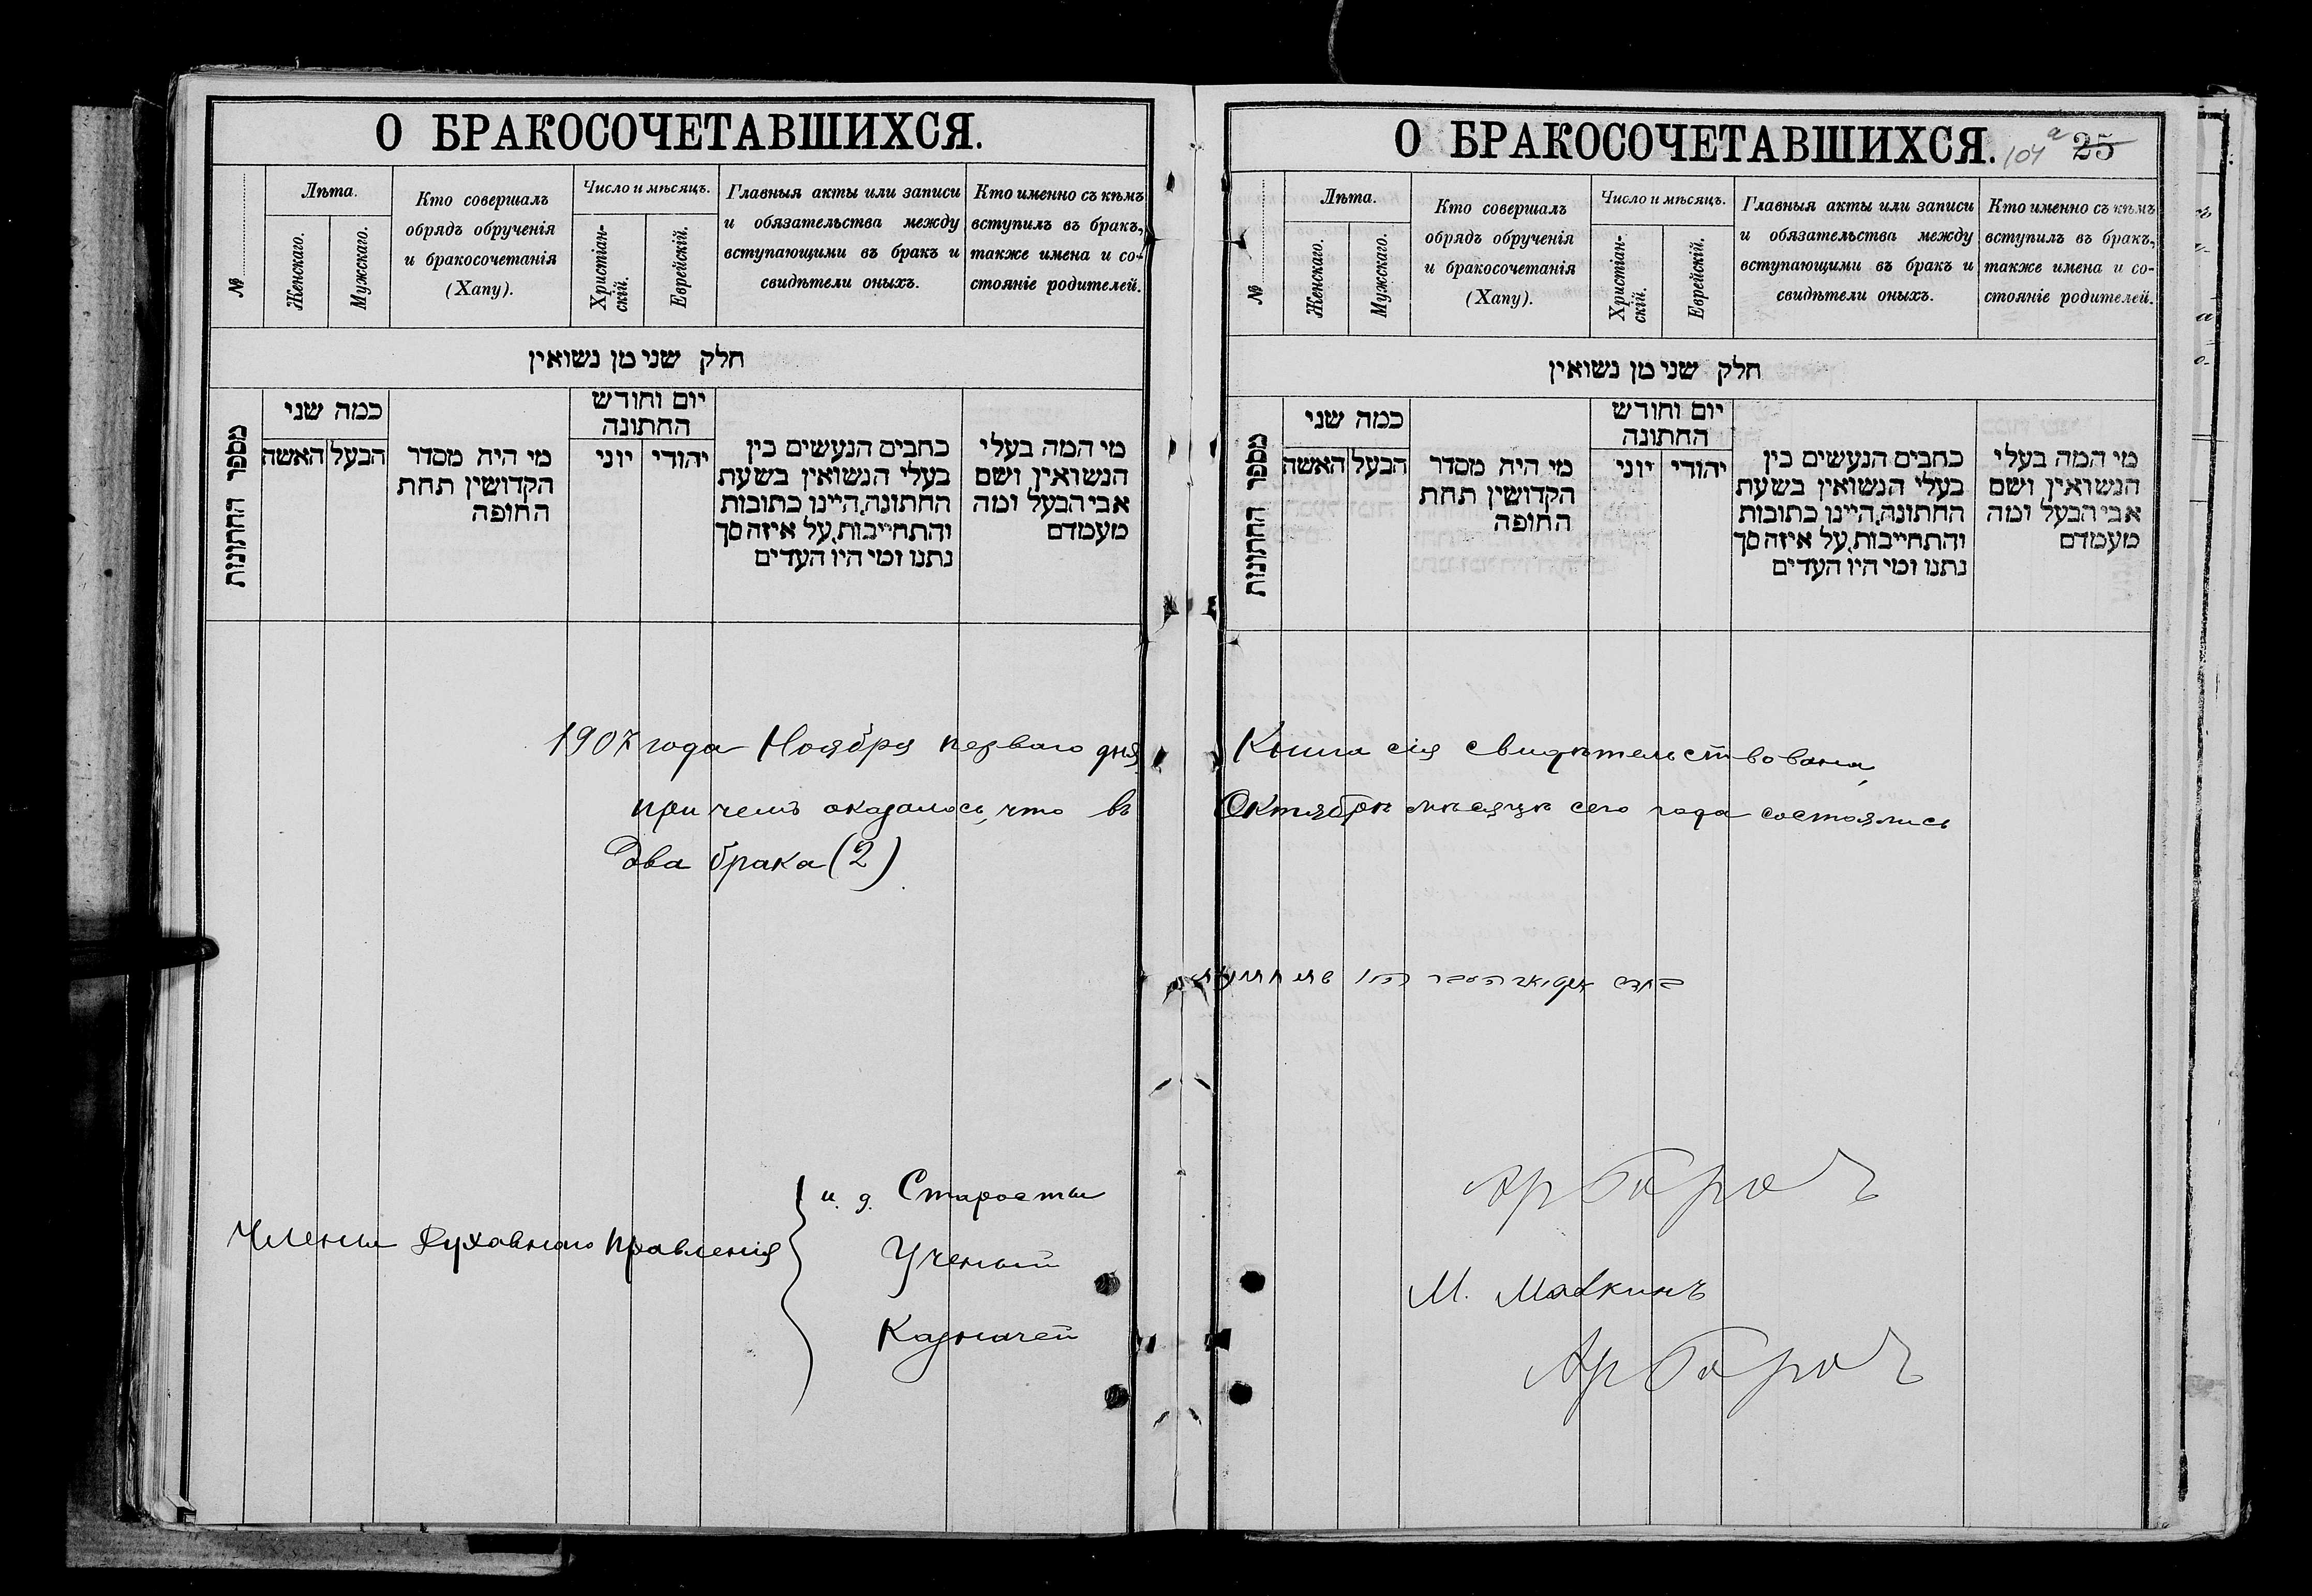 О БРАКОСОЧЕТАВШИХСЯ.
№
Лѣта.
Женскаго.
Мужскаго.
Кто совершалъ
обрядъ обрученія
и бракосочетанія
(Хапу).
Число и мѣсяцъ.
Христіан-
скій.
Еврейскій.
Главныя акты или записи
и обязательства между
вступающими въ бракъ и
свидѣтели оныхъ.
Кто именно съ кѣмъ
вступилъ въ бракъ,
также имена и со-
стояніе родителей.
חלק שני מן נשואין
מספר החתונות
כמה שני
האשה
הבעל
מי היה מסדר
הקדושין תחת
החופה
יום וחודש
החתונה
יוני
יהודי
כתבים הנעשים בין
בעלי הנשואין בשעת
החתונה, היינו כתובות
והתחייבות, על איזה סך
נתנו ומי היו העדים
מי המה בעלי
הנשואין, ושם
אבי הבעל ומה
מעמדם
1907 года Ноября перваго дня
при чемъ оказалось, что въ
Два брака (2)
Члены Духовнаго Правленія
и. д. Старосты
Ученый
Казначей
О БРАКОСОЧЕТАВШИХСЯ.
104 а 25
№
Лѣта.
Женскаго.
Мужскаго.
Кто совершалъ
обрядъ обрученія
и бракосочетанія
(Хапу).
Число и мѣсяцъ.
Христіан-
скій.
Еврейскій.
Главныя акты или записи
и обязательства между
вступающими въ бракъ и
свидѣтели оныхъ.
Кто именно съ кѣмъ
вступилъ въ бракъ,
также имена и со-
стояніе родителей.
חלק שני מן נשואין
מספר החתונות
כמה שני
האשה
הבעל
מי היה מסדר
הקדושין תחת
החופה
יום וחודש
החתונה
יוני
יהודי
כתבים הנעשים בין
בעלי הנשואין בשעת
החתונה, היינו כתובות
והתחייבות, על איזה סך
נתנו ומי היו העדים
מי המה בעלי
הנשואין, ושם
אבי הבעל ומה
מעמדם
Книга сія свидѣтельствована,
Октябрѣ мѣсяцѣ сего года состоялись
М.